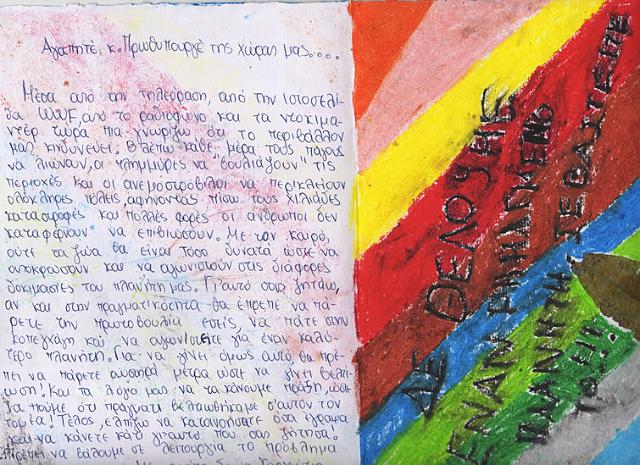 Αγαπητέ κ. Πρωθυπουργέ της χώρας μας....
Μέσα από την τηλεόραση, από την ιστοσελί-
δα WWF, από το ραδιόφωνο και τα ντοκιμα-
ντέρ τώρα πια γνωρίζω ότι το περιβάλλον
μας κινδυνεύει. Βλέπω κάθε μέρα τους πάγους
να λιώνουν, οι πλημμύρες να "βουλιάζουν" τις
περιοχές και οι ανεμοστρόβιλοι να περικλείουν
ολόκληρες πόλεις, αφήνοντας πίσω τους χιλιάδες
καταστροφές και πολλές φορές οι άνθρωποι δεν
καταφέρνουν να επιβιώσουν. Με τον καιρό,
ούτε τα ζώα θα είναι τόσο δυνατά ώστε να
αποκρούσουν και να αγωνιστούν στις διάφορες
δοκιμασίες του πλανήτη μας. Γι'αυτό σας ζητάω,
αν και στην πραγματικότητα θα έπρεπε να πά-
ρετε την πρωτοβουλία εσείς, να πάτε στην
κοπεγχάγη και να αγωνιστείτε για έναν καλύ-
τερο πλανήτη. Για να γίνει όμως αυτό θα πρέ-
πει να πάρετε σωστά μέτρα ώστε να γίνει βελτί-
ωση! Και τα λόγια μας να τα κάνουμε πράξη, ώστε
να πούμε ότι πράγματι βελτιωθήκαμε σ'αυτόν τον
τομέα! Τέλος, ελπίζω να κατανοήσατε ότι έγραψα
και να κάνετε κάτι γι'αυτό που σας ζήτησα!
Πρέπει να βάλουμε σε λειτουργία το πρόβλημα
ΔΕ ΘΕΛΟΥΜΕ
ΕΝΑΝ ΠΝΗΓΜΕΝΟ
ΠΛΑΝΗΤΗ.